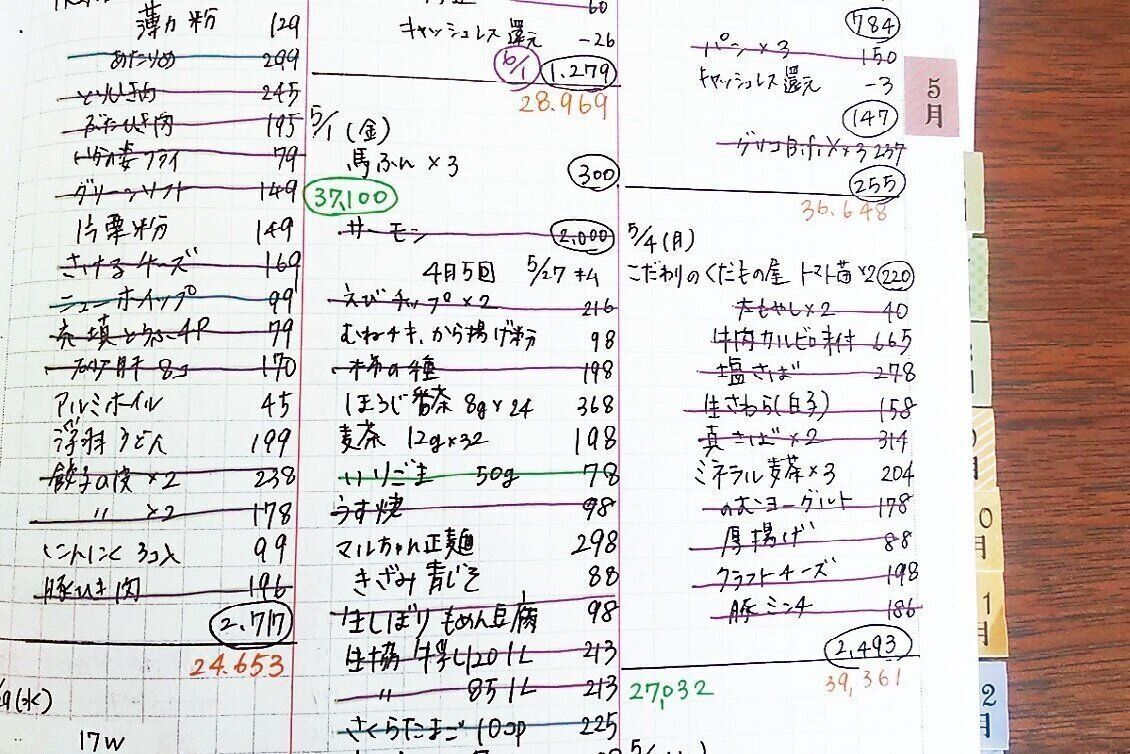 薄力粉 129
あたりめ 299
とりひき肉 245
ぶたひき肉 195
フライ 79
グリーンソフト 149
片栗粉 149
さけるチーズ 169
ニューホイップ 99
充填とうふ4P 79
8コ 170
アルミホイル 45
浮羽うどん 199
餃子の皮×2 238
〃 ×2 178
にんにく3コ入 99
豚ひき肉 196
2,717
24.653
9(水)
17W
60
キャッシュレス還元 -26
6/1 1,279
28.969
5/1(金)
馬ふん×3 300
37,100
サーモン 2,000
4月5回 5/27 キム
えびチップ×2 216
むねチキ、から揚げ粉 98
柿の種 198
ほうじ番茶 8g×24 368
麦茶 12g×32 198
いりごま 50g 78
うす焼 98
マルちゃん正麺 298
きざみ青じそ 88
生しぼりもめん豆腐 98
生協牛乳120 1L 213
〃 85 1L 213
さくらたまご 10コP 225
784
パン×3 150
キャッシュレス還元 -3
147
グリコ ×3 257
255
36.648
5/4(月)
こだわりのくだもの屋 トマト苗×2 220
大もやし×2 40
牛肉カルビ味付 665
塩さば 278
生さわら(白子) 158
真さば×2 314
ミネラル麦茶×3 204
のむヨーグルト 178
厚揚げ 88
クラフトチーズ 198
豚ミンチ 186
2,493
27,032 39,361
5月
0月
1月
2月